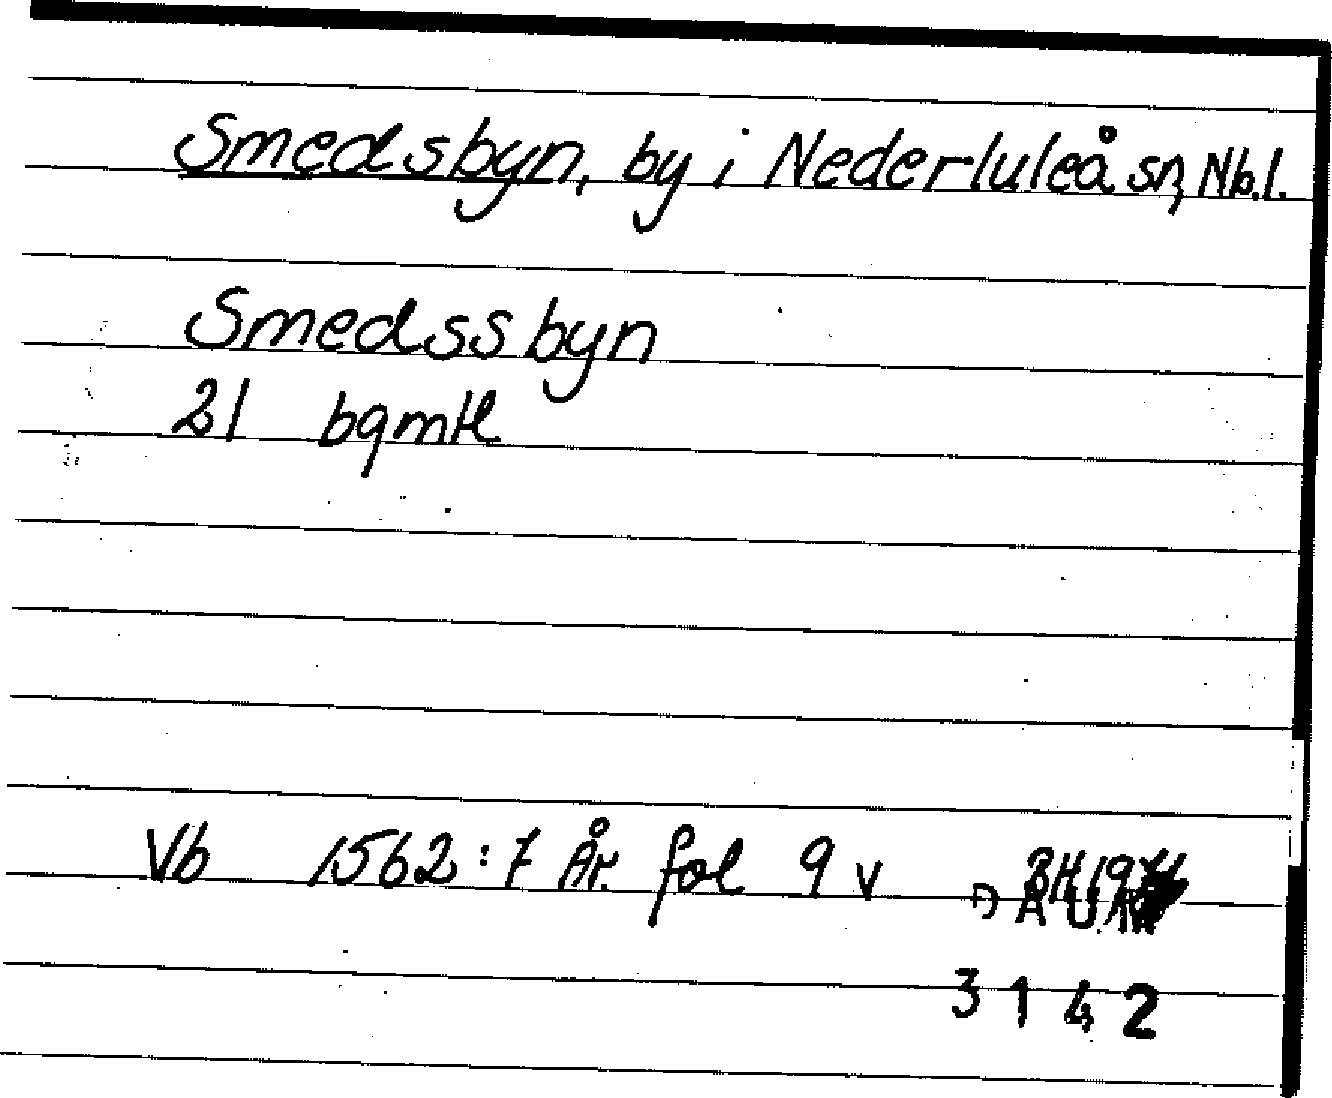 Smedsbyn, by i Nederluleå sn, Nb.l.
Smedssbyn
21 bgmK
Vb 1562:7 År. fol 9 v BH 1971
DAUM
3142